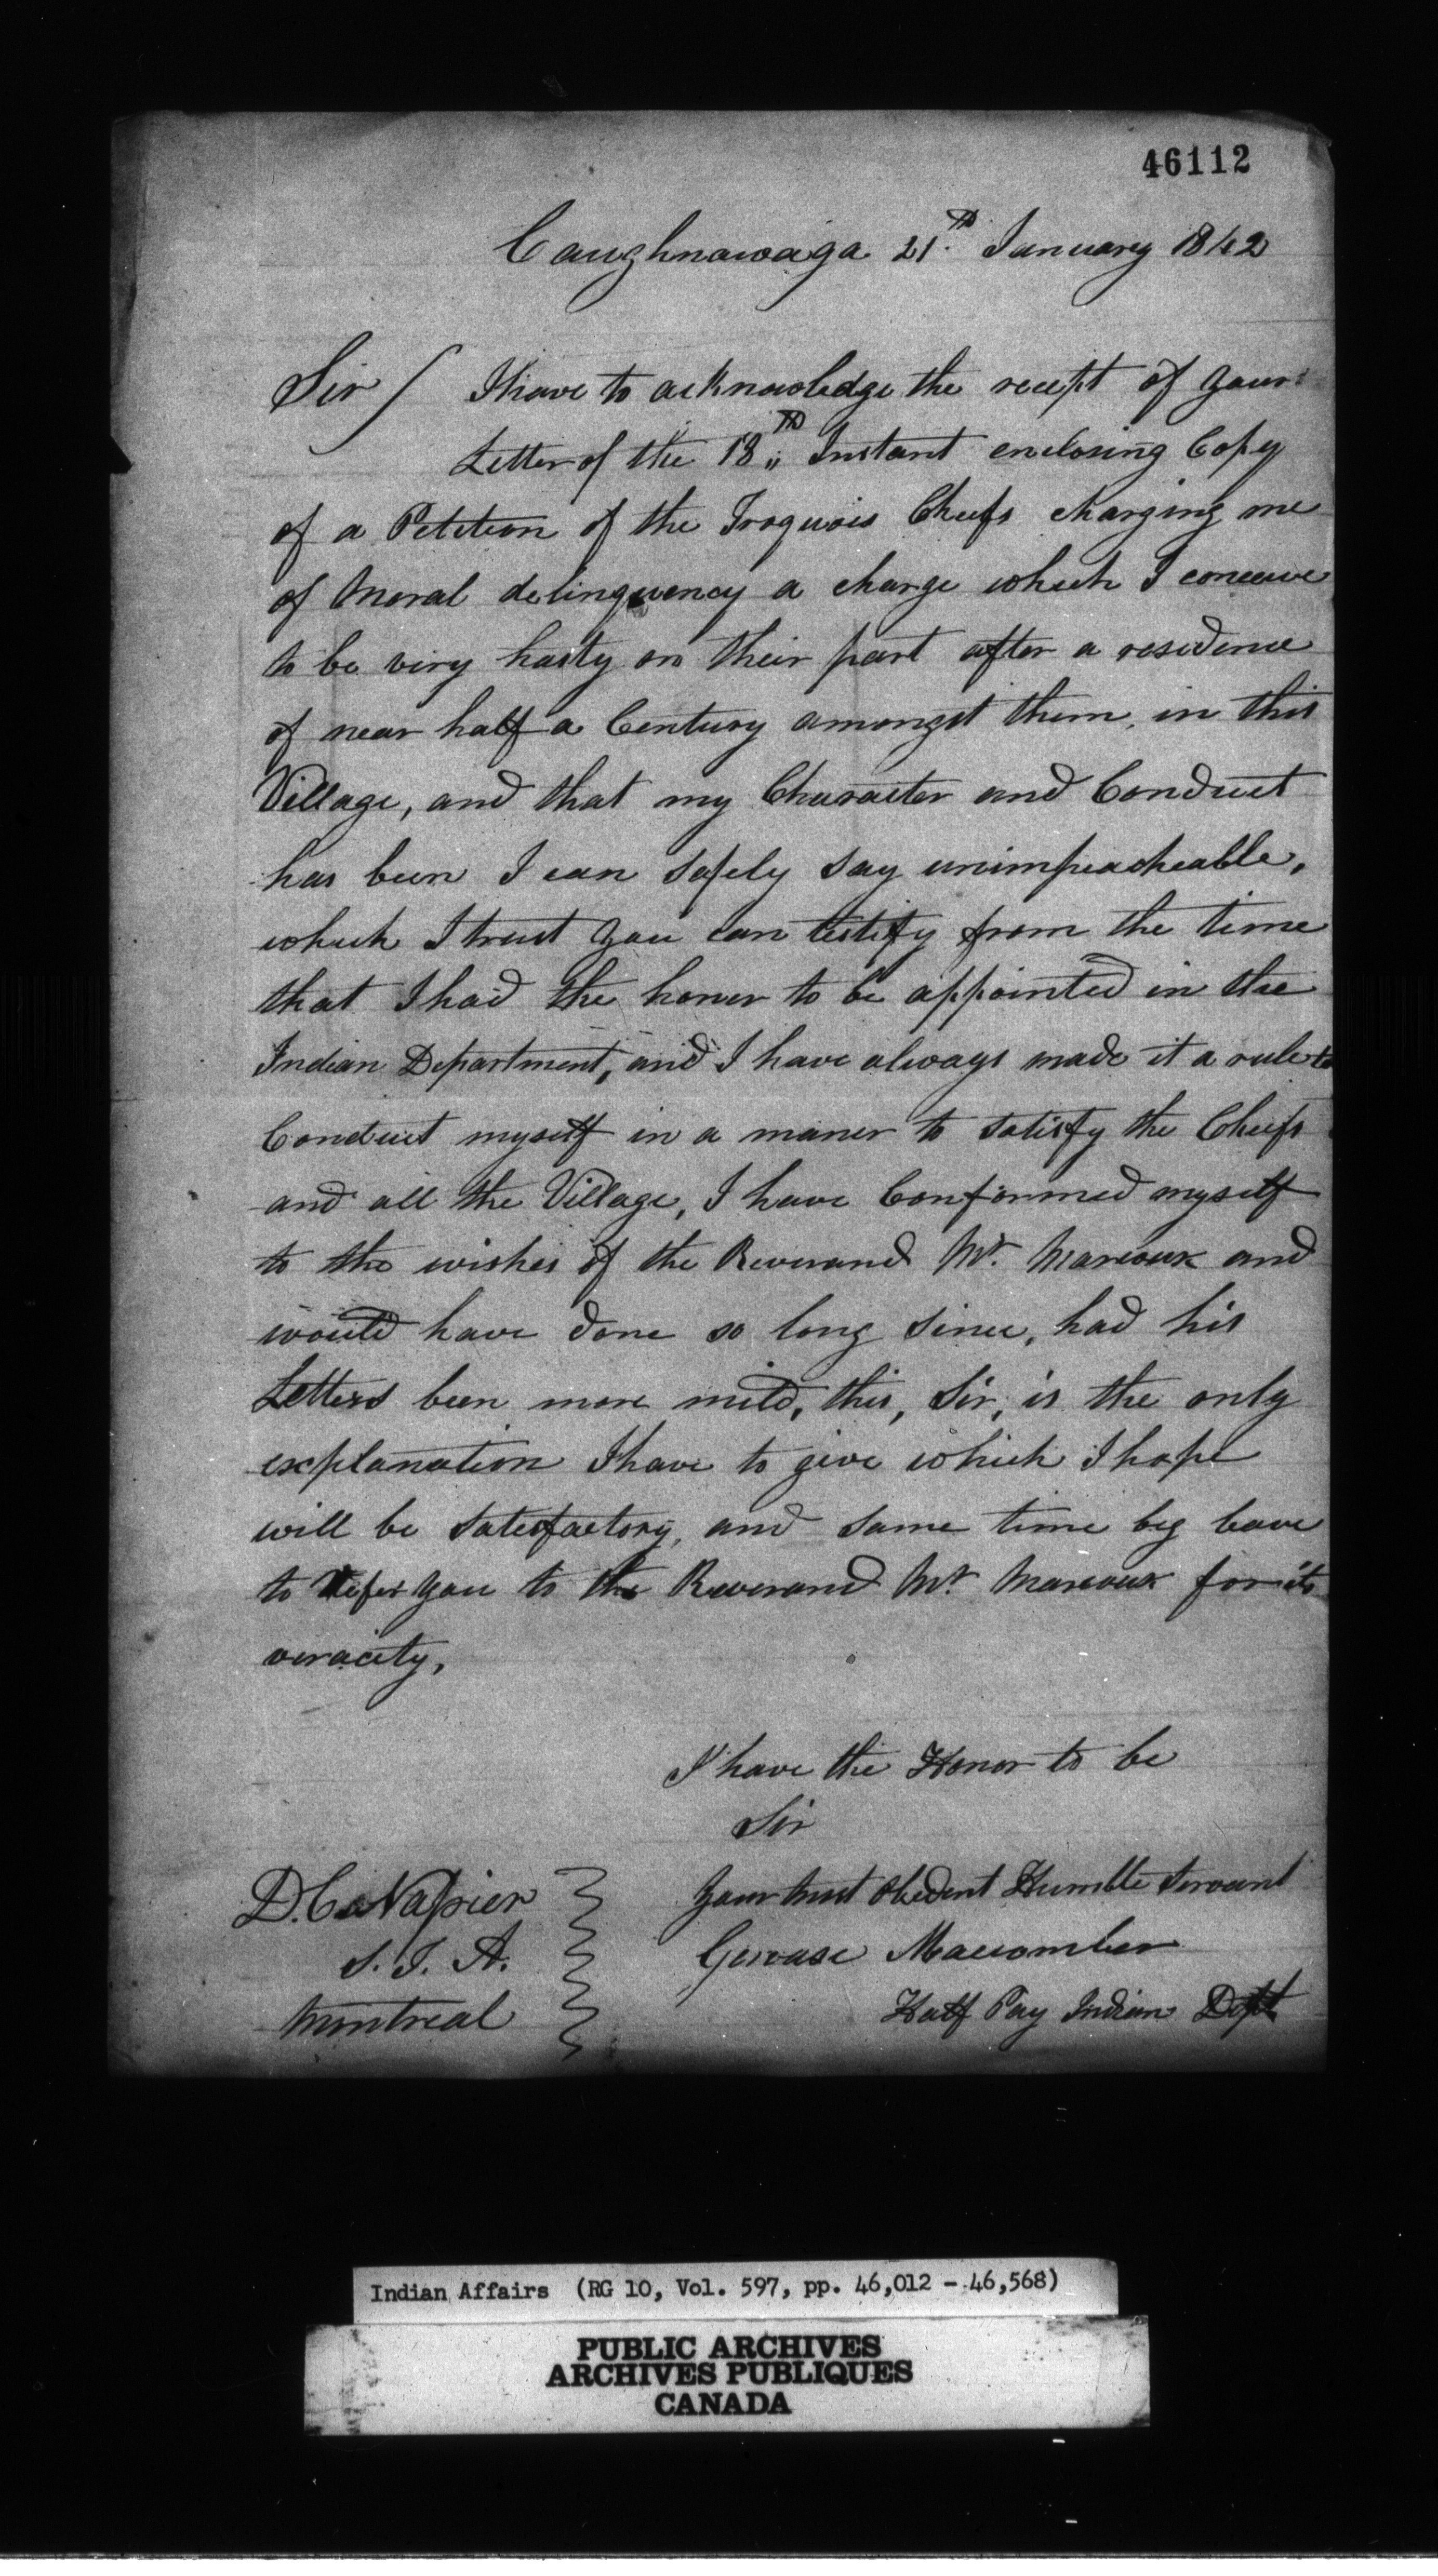 46112
Caughnawaga 21.th January 1842
Sir / I have to acknowledge the recept of your
Letter of the 18th Instant enclosing Copy
of a Petition of the Iroquois Cheefs charging me
of Moral delinquency a charge which I conceive
to be very hasty on their part after a residence
of near half a Century amongst them, in this
Village, and that my Character and Conduct
has been I can safely say unimpeacheable,
which I trust you can testify from the time
that I had the honor to be appointed in the
Indian Department, and I have always made it a rule to
Conduct myself in a maner to satisfy the Cheefs
and all the Village, I have Conformed myself
to the wishes of the Reverand Mr. Marcoux and
would have done so long since, had his
Letters been more mild, this, Sir, is the only
explanation I have to give which I hope
will be satisfactory, and same time beg leave
to refer you to the Reverand Mr. Marcoux for its
veracity,
I have the Honor to be
Sir
Your most Obedent Humble Servant
Gervase Macomber
Half Pay Indian Dept
D. C. Napier
S. I. A.
Montreal
Indian Affairs (RG 10, Vol. 597, pp. 46,012 - 46,568)
PUBLIC ARCHIVES
ARCHIVES PUBLIQUES
CANADA